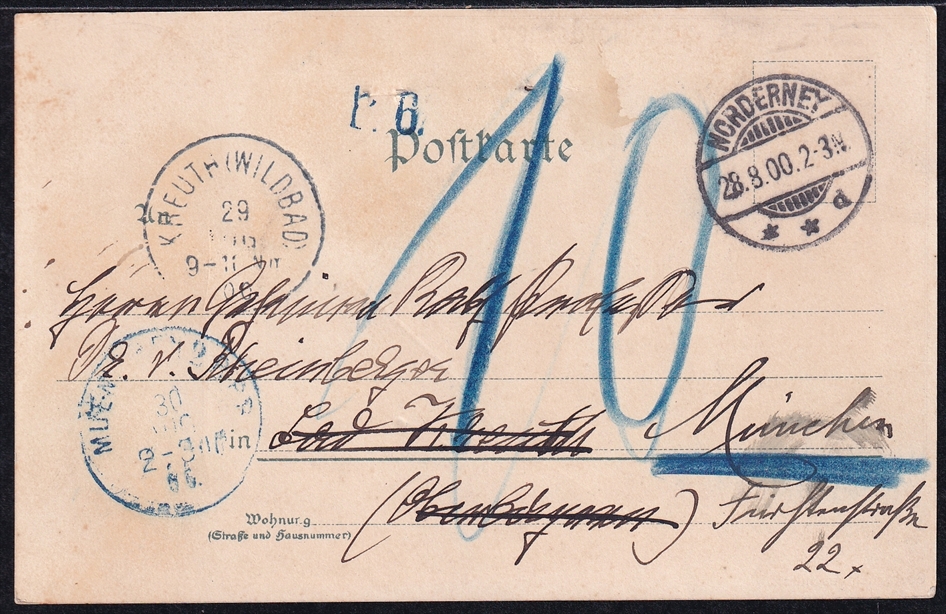 P. 6.
Postkarte
10
NORDERNEY
28.8.00.2-3N.
* * d
KREUTH (WILDBAD)
29
AUG
9-11 Vm
00
An
Herrn Geheimen Rat Professor
Dr. v. Rheinberger
in Bad Kreuth München
MUENCHEN
30
AUG
2-3
00.
(Oberbayern) Fürstenstraße
22
Wohnung
(Straße und Hausnummer)